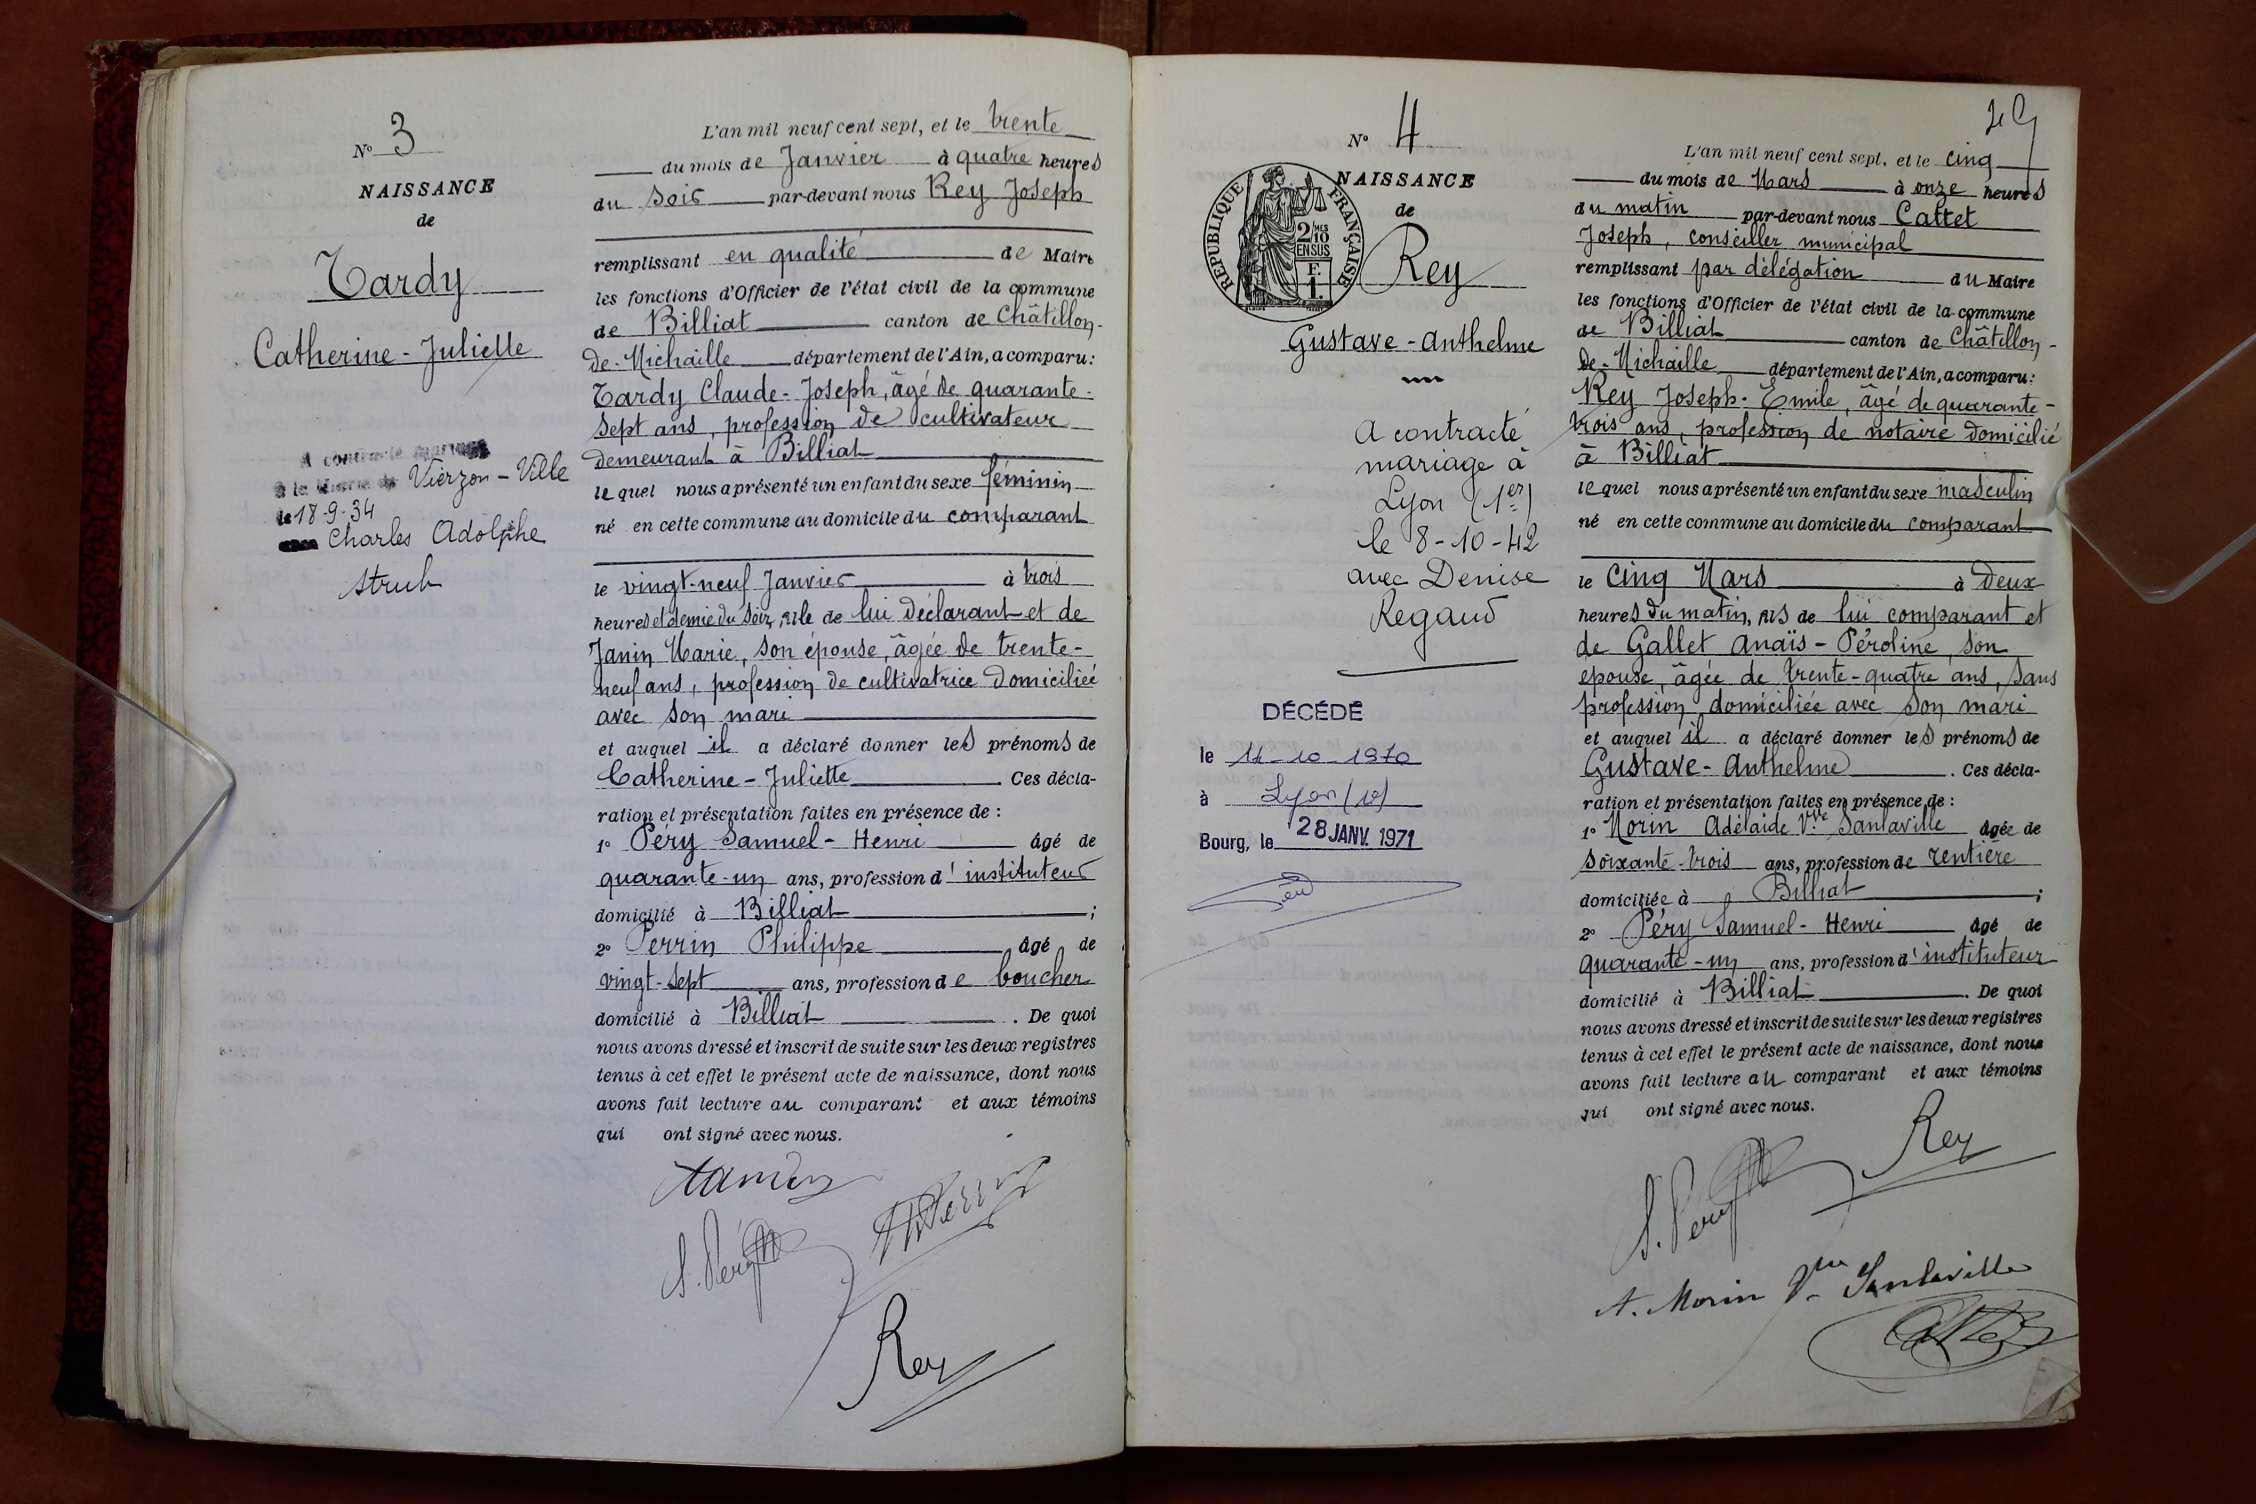 N° 3
NAISSANCE
de
Tardy
Catherine-Juliette
A contracté mariage
à la Mairie de Vierzon-Ville
le 18-9-34
Charles Adolphe
Strub
L'an mil neuf cent sept, et le trente
du mois de Janvier à quatre heures
du soir par-devant nous Rey Joseph
remplissant en qualité de Maire
les fonctions d'Officier de l'état civil de la commune
de Billiat canton de Châtillon-
de-Michaille département de l'Ain, a comparu:
Tardy Claude-Joseph, âgé de quarante-
sept ans, profession de cultivateur
demeurant à Billiat
lequel nous a présenté un enfant du sexe féminin
né en cette commune au domicile du comparant
le vingt-neuf Janvier à trois
heures et demie du soir, fille de lui déclarant et de
Janin Marie, son épouse, âgée de trente-
neuf ans, profession de cultivatrice domiciliée
avec son mari
et auquel il a déclaré donner les prénoms de
Catherine-Juliette. Ces décla-
ration et présentation faites en présence de :
1° Péry Samuel-Henri âgé de
quarante-un ans, profession d'instituteur
domicilié à Billiat ;
2° Perrin Philippe âgé de
vingt-sept ans, profession de boucher
domicilié à Billiat. De quoi
nous avons dressé et inscrit de suite sur les deux registres
tenus à cet effet le présent acte de naissance, dont nous
avons fait lecture au comparant et aux témoins
qui ont signé avec nous.
Tardy
Ph Perrin
S. Péry
Rey
N° 4
NAISSANCE
de
REPUBLIQUE FRANÇAISE
2/10 MES
EN SUS
F.
1.
Rey
Gustave-Anthelme
A contracté
mariage à
Lyon (1er)
le 8-10-42
avec Denise
Regaud
DÉCÉDÉ
le 14-10-1970
à Lyon
Bourg, le 28 JANV. 1971
L'an mil neuf cent sept, et le cinq
du mois de Mars à onze heures
du matin par-devant nous Cattet
Joseph, conseiller municipal
remplissant par délégation du Maire
les fonctions d'Officier de l'état civil de la commune
de Billiat canton de Châtillon-
de-Michaille département de l'Ain, a comparu:
Rey Joseph-Emile, âgé de quarante-
trois ans, profession de notaire domicilié
à Billiat
lequel nous a présenté un enfant du sexe masculin
né en cette commune au domicile du comparant
le cinq Mars à deux
heures du matin, fils de lui comparant et
de Gallet Anaïs-Péroline, son
épouse, âgée de trente-quatre ans, sans
profession domiciliée avec son mari
et auquel il a déclaré donner les prénoms de
Gustave-Anthelme. Ces décla-
ration et présentation faites en présence de :
1° Morin Adélaïde Vve Santaville âgée de
soixante-trois ans, profession de rentière
domiciliée à Billiat ;
2° Péry Samuel-Henri âgé de
quarante-un ans, profession d'instituteur
domicilié à Billiat. De quoi
nous avons dressé et inscrit de suite sur les deux registres
tenus à cet effet le présent acte de naissance, dont nous
avons fait lecture au comparant et aux témoins
qui ont signé avec nous.
Rey
S. Péry
A. Morin Vve Santaville
Cattet